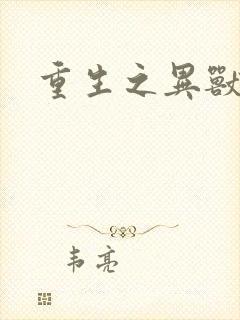 重生之異獸
韦亮